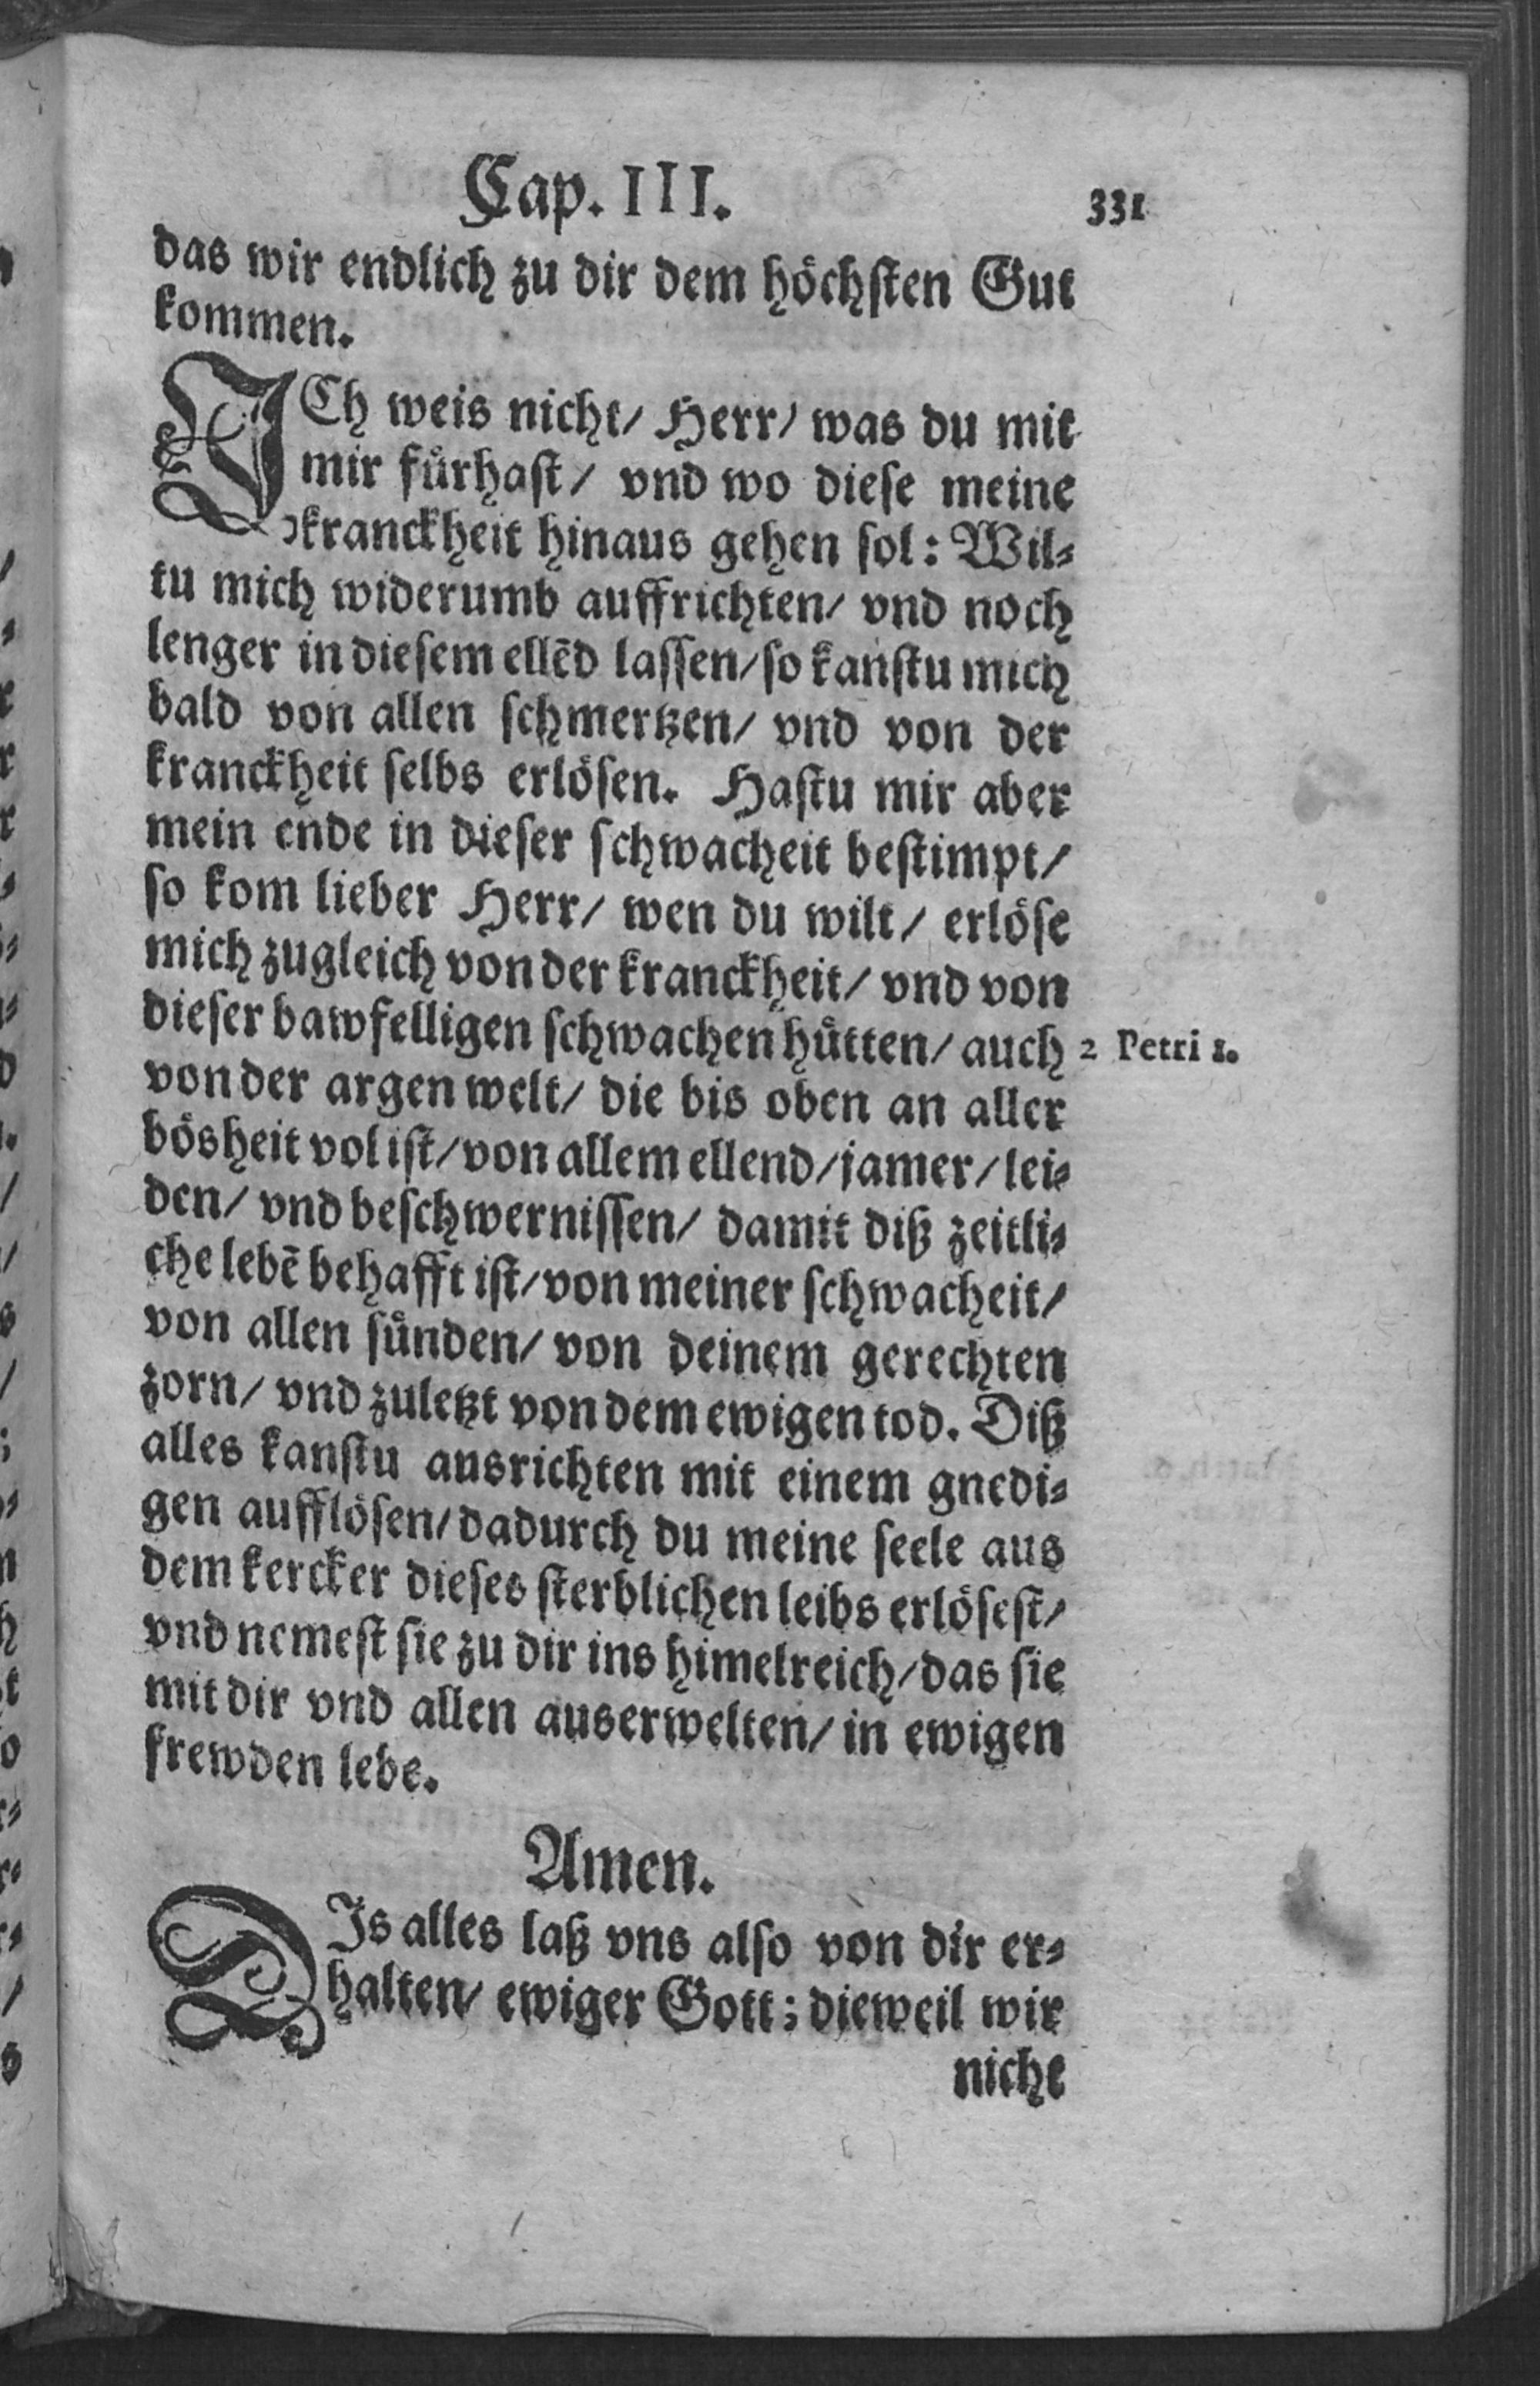 Cap. III. 331
das wir endlich zu dir dem höchsten Gut
kommen.
ICh weis nicht/ Herr/ was du mit
mir fürhast/ vnd wo diese meine
kranckheit hinaus gehen sol: Wil-
tu mich widerumb auffrichten/ vnd noch
lenger in diesem ellēd lassen/ so kanstu mich
bald von allen schmertzen/ vnd von der
kranckheit selbs erlösen. Hastu mir aber
mein ende in dieser schwacheit bestimpt/
so kom lieber Herr/ wen du wilt/ erlöse
mich zugleich von der kranckheit/ vnd von
dieser bawfelligen schwachen hütten/ auch
2 Petri 1.
von der argen welt/ die bis oben an aller
bösheit vol ist/ von allem ellend/ jamer/ lei-
den/ vnd beschwernissen/ damit diß zeitli-
che lebē behafft ist/ von meiner schwacheit/
von allen sünden/ von deinem gerechten
zorn/ vnd zuletzt von dem ewigen tod. Diß
alles kanstu ausrichten mit einem gnedi-
gen aufflösen/ dadurch du meine seele aus
dem kercker dieses sterblichen leibs erlösest/
vnd nemest sie zu dir ins himelreich/ das sie
mit dir vnd allen auserwelten/ in ewigen
frewden lebe.
Amen.
DIs alles laß vns also von dir er-
halten/ ewiger Gott; dieweil wir
nicht